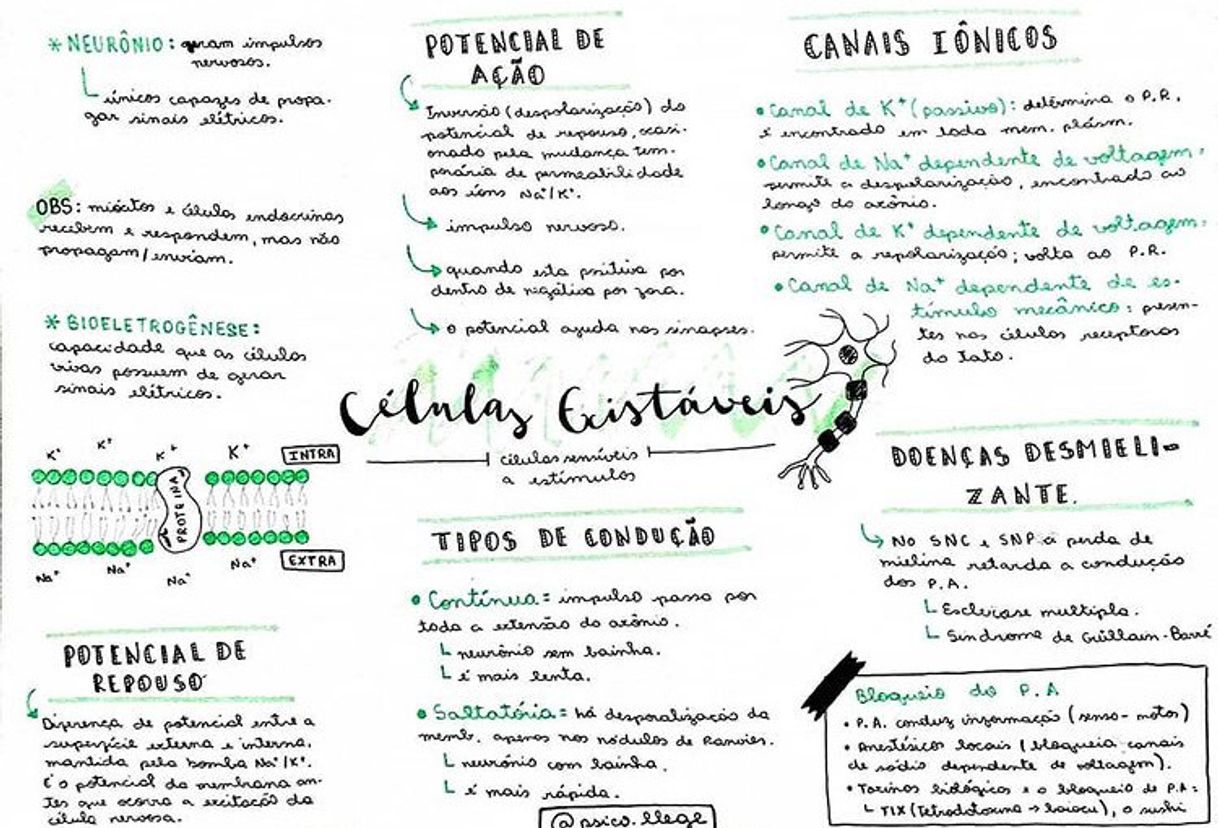 * NEURÔNIO: geram impulsos
nervosos.
únicos capazes de propa-
gar sinais elétricos.
OBS: miócitos e células endocrinas
recebem e respondem, mas não
propagam/enviam.
* BIOELETROGÊNESE:
capacidade que as células
vivas possuem de gerar
sinais elétricos.
K+ K+ K+ K+
INTRA
PROTEINA
EXTRA
Na+ Na+ Na+ Na+
POTENCIAL DE
REPOUSO
Diferença de potencial entre a
superfície externa e interna,
mantida pela bomba Na+/K+.
É o potencial da membrana an-
tes que ocorra a excitação da
célula nervosa.
POTENCIAL DE
AÇÃO
Inversão (despolarização) do
potencial de repouso, ocasi-
onado pela mudança tem-
porária de permeabilidade
aos íons Na+/K+.
impulso nervoso.
quando esta positiva por
dentro de negativa por fora.
o potencial ajuda nas sinapses.
Células Existáveis
células sensíveis
a estímulos
TIPOS DE CONDUÇÃO
• Contínua = impulso passa por
toda a extensão do axônio.
neurônio sem bainha.
é mais lenta.
• Saltatória = há despolarização da
memb. apenas nos nódulos de Ranvier.
neurônio com bainha.
é mais rápida.
@psico.llege
CANAIS IÔNICOS
• Canal de K+ (passivo): determina o P.R,
é encontrado em toda mem. plásm.
• Canal de Na+ dependente de voltagem:
permite a despolarização, encontrado ao
longo do axônio.
• Canal de K+ dependente de voltagem:
permite a repolarização; volta ao P.R.
• Canal de Na+ dependente de es-
tímulo mecânico: presen-
tes nas células receptoras
do tato.
DOENÇAS DESMIELI-
ZANTE.
No SNC e SNP a perda de
mielina retarda a condução
dos P.A.
Esclerose multipla.
Sindrome de Guillain-Barré
Bloqueio do P.A
• P.A. conduz informação (senso-motor)
• Anestésicos locais (bloqueia canais
de sódio dependente de voltagem).
• Toxinas biológicas e o bloqueio de P.A:
TTX (Tetrodotoxina → baiacu), o sushi